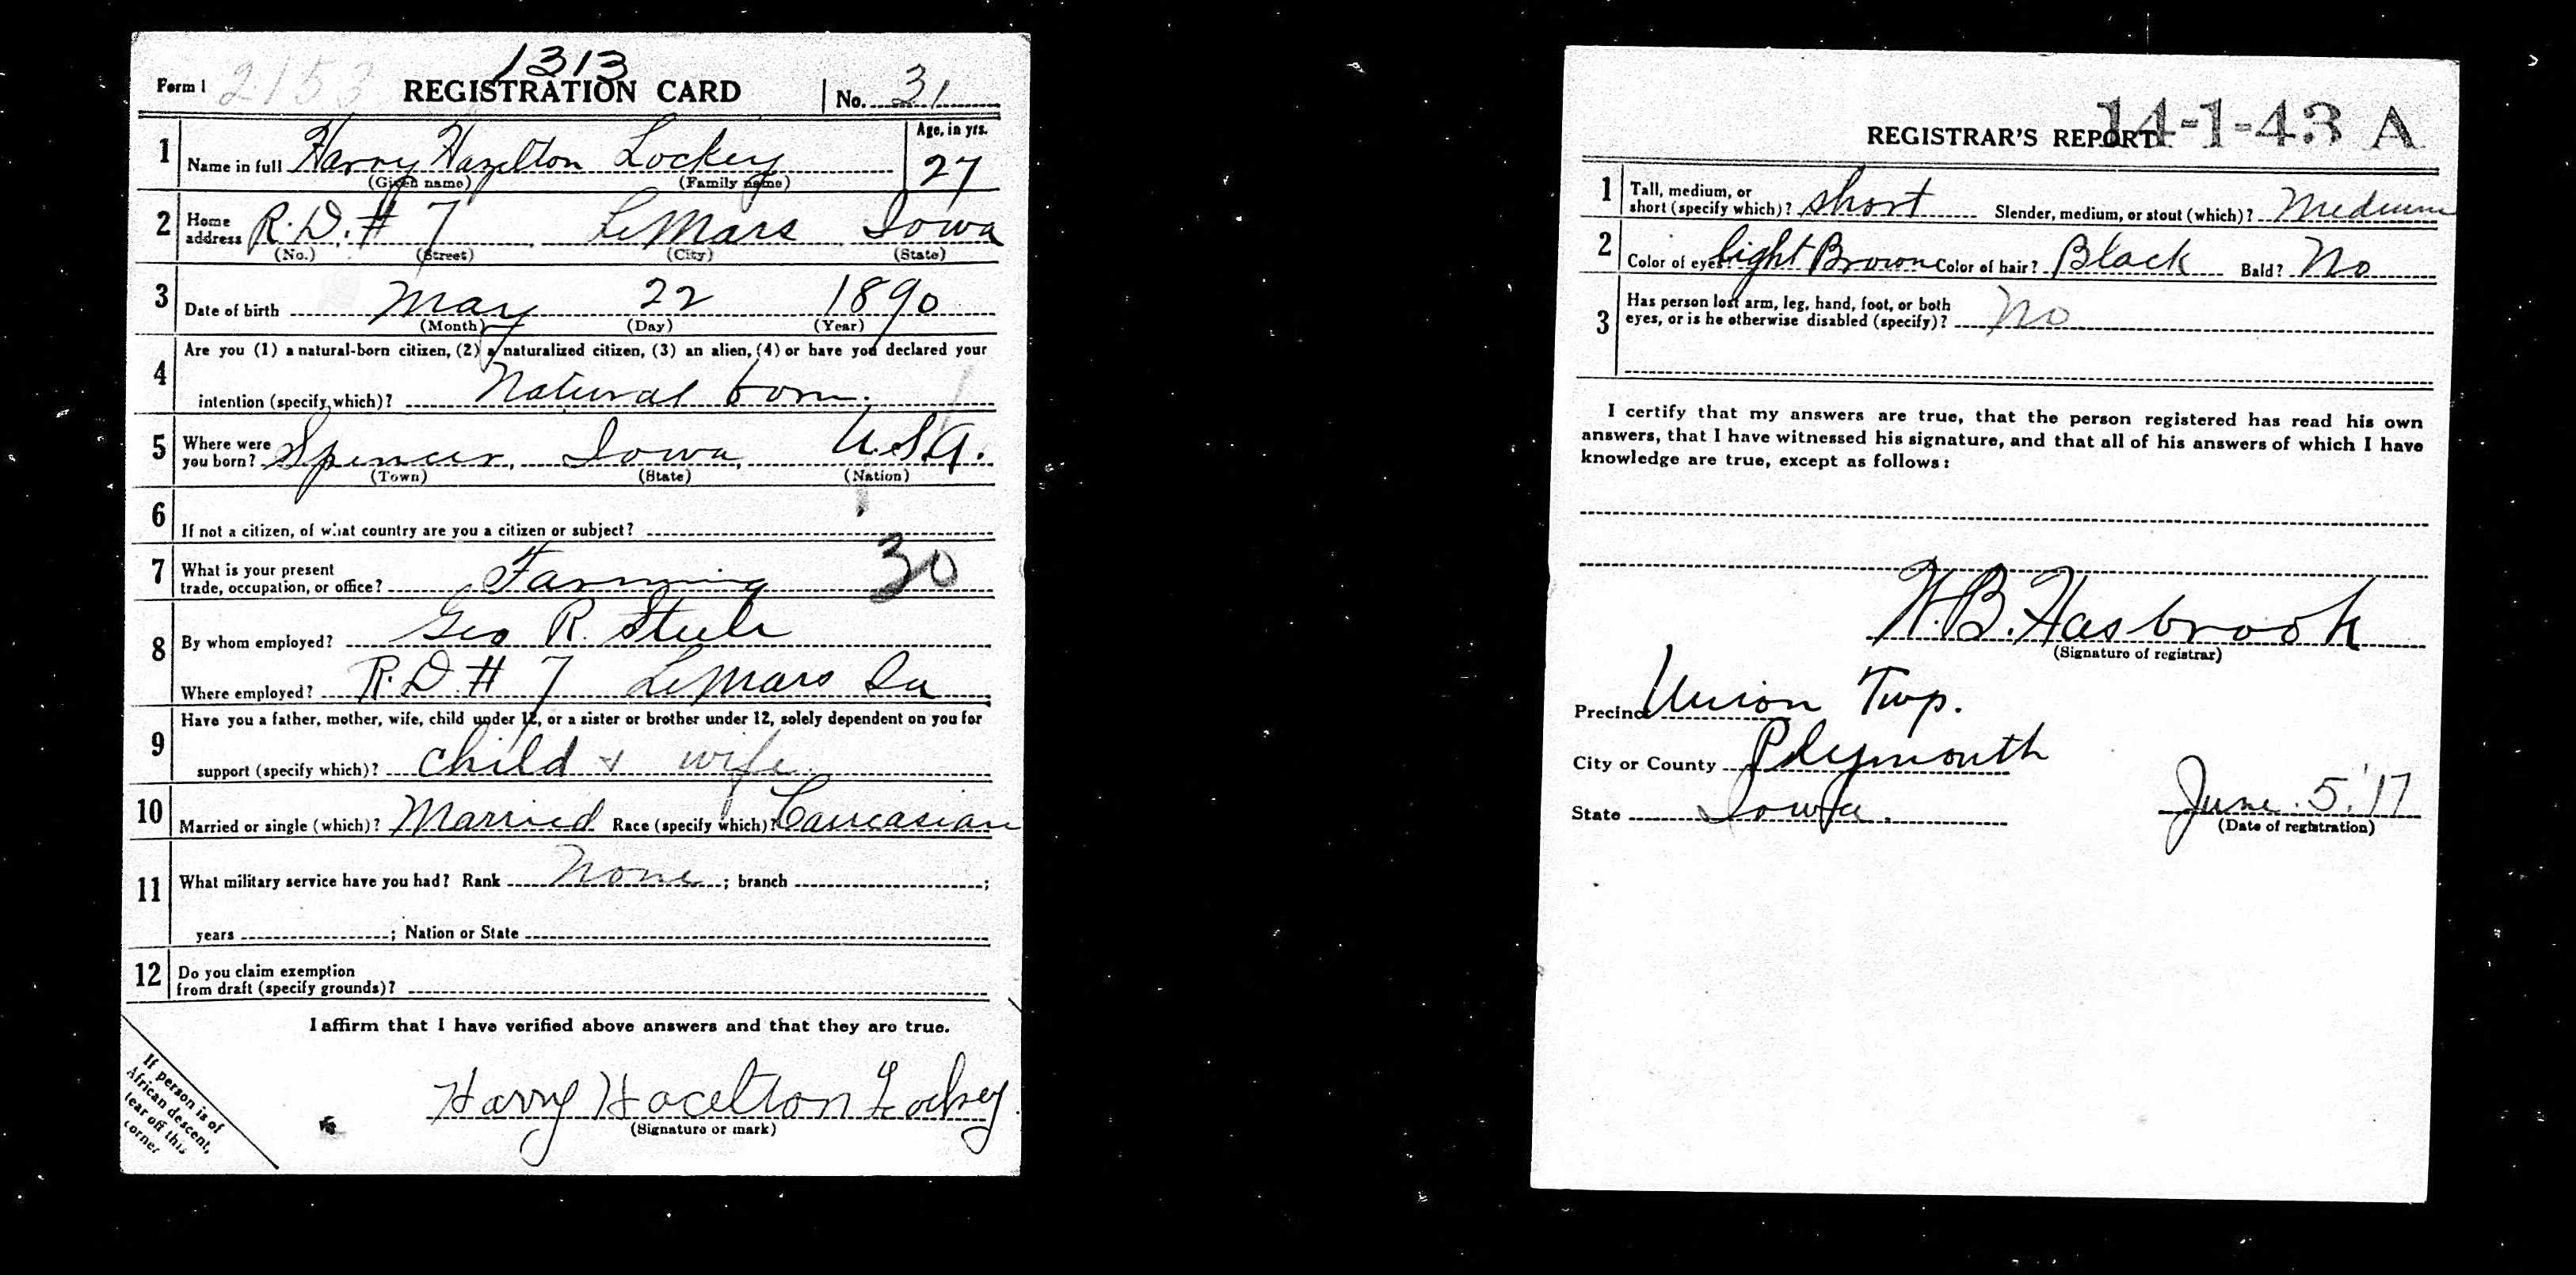 1313
Form 1 2153 REGISTRATION CARD No. 31
1 Name in full Harry Hazelton Lockey Age, in yrs. 27
(Given name) (Family name)
2 Home address R.D. # 7 LeMars Iowa
(No.) (Street) (City) (State)
3 Date of birth May 22 1890
(Month) (Day) (Year)
4 Are you (1) a natural-born citizen, (2) a naturalized citizen, (3) an alien, (4) or have you declared your
intention (specify which)? Natural born.
5 Where were you born? Spencer, Iowa, U.S.A.
(Town) (State) (Nation)
6 If not a citizen, of what country are you a citizen or subject?
7 What is your present trade, occupation, or office? Farming 30
8 By whom employed? Geo R. Steele
Where employed? R.D. # 7 LeMars Ia
9 Have you a father, mother, wife, child under 12, or a sister or brother under 12, solely dependent on you for
support (specify which)? child & wife
10 Married or single (which)? Married Race (specify which)? Caucasian
11 What military service have you had? Rank None ; branch ;
years ; Nation or State
12 Do you claim exemption
from draft (specify grounds)?
I affirm that I have verified above answers and that they are true.
Harry Hacelton Lockey
(Signature or mark)
If person is of
African descent,
tear off this
corner
14-1-43 A
REGISTRAR'S REPORT
1 Tall, medium, or
short (specify which)? short Slender, medium, or stout (which)? Medium
2 Color of eyes? light Brown Color of hair? Black Bald? No
3 Has person lost arm, leg, hand, foot, or both
eyes, or is he otherwise disabled (specify)? No
I certify that my answers are true, that the person registered has read his own
answers, that I have witnessed his signature, and that all of his answers of which I have
knowledge are true, except as follows:
W.B. Hasbrook
(Signature of registrar)
Precinct Union Twp.
City or County Plymouth
State Iowa. June 5, '17
(Date of registration)